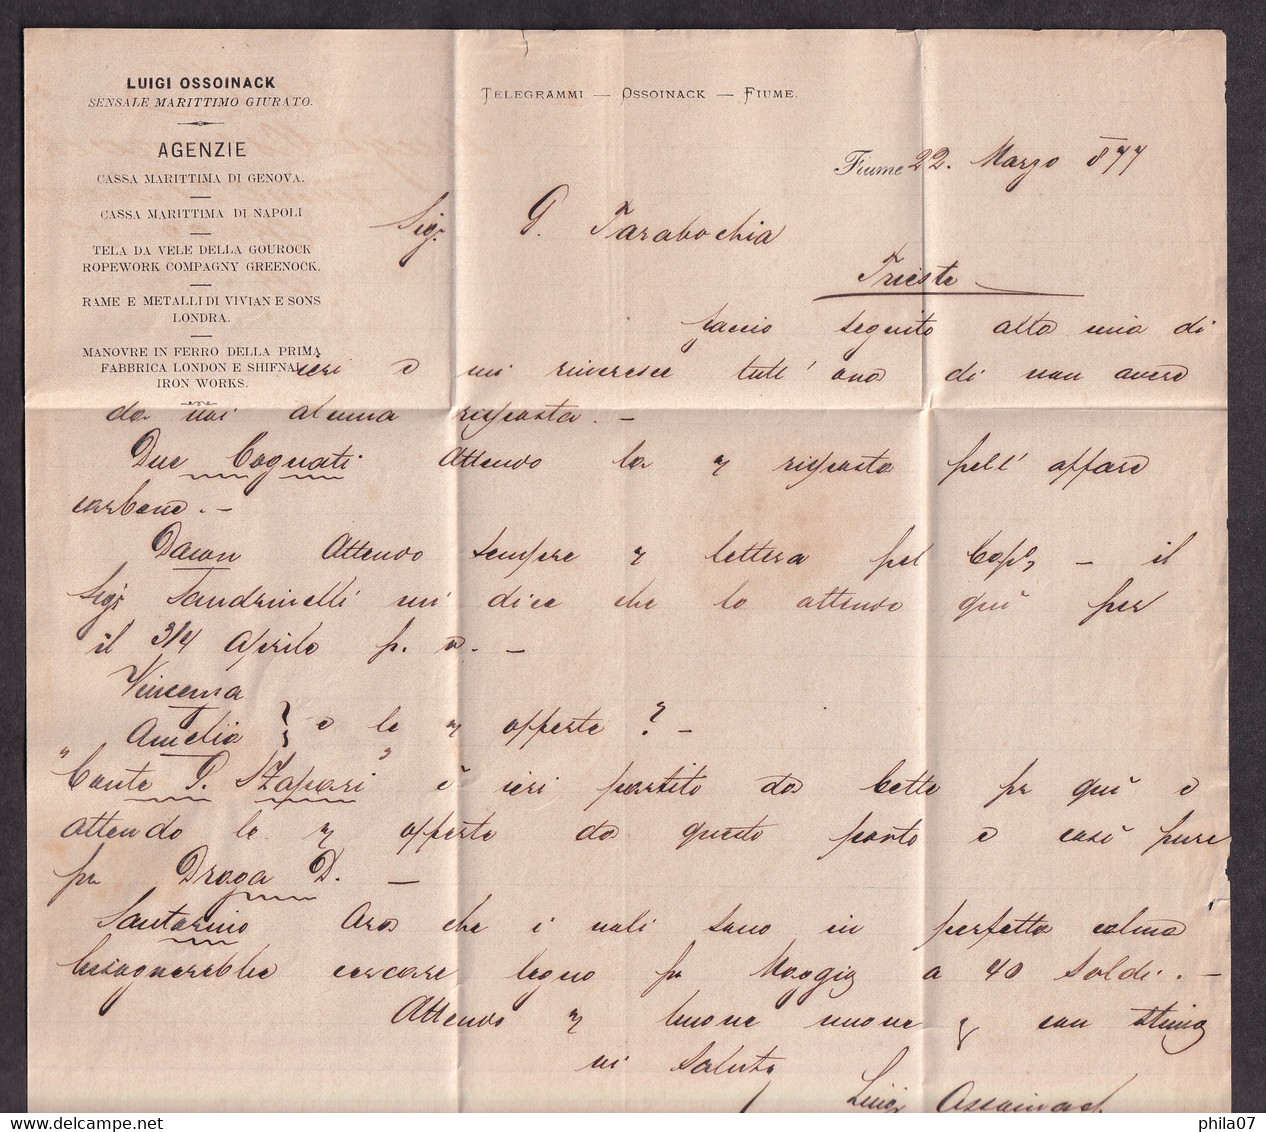 LUIGI OSSOINACK
SENSALE MARITTIMO GIURATO.
AGENZIE
CASSA MARITTIMA DI GENOVA.
CASSA MARITTIMA DI NAPOLI
TELA DA VELE DELLA GOUROCK
ROPEWORK COMPAGNY GREENOCK.
RAME E METALLI DI VIVIAN E SONS
LONDRA.
MANOVRE IN FERRO DELLA PRIMA
FABBRICA LONDON E SHIFNAL
IRON WORKS.
TELEGRAMMI — OSSOINACK — FIUME.
Fiume 22. Marzo 877
Sigr G. Tarabochia
Trieste
faccio seguito alla mia di
ieri e mi rincresce tutt' ora di non avere
da voi alcuna risposta. —
Due Cognati Attendo la risposta pell' affare
carbone. —
Attendo sempre lettera pel Capo — il
Sigr Sandrinelli mi dice che lo attende quì per
il 3/4 Aprile p. v. —
Vincenza
Amelia } e le offerte? —
"Conte G. Szapari" è ieri partito da Cette pr quì e
attendo le offerte da questo porto e così pure
pr Draga D. —
Santorino Ora che i noli sono in perfetta calma
bisognerebbe cercare legno pr Maggio a 40 Soldi. —
Attendo buone nuove con stima
vi saluto
Luigi Ossoinack
phila07